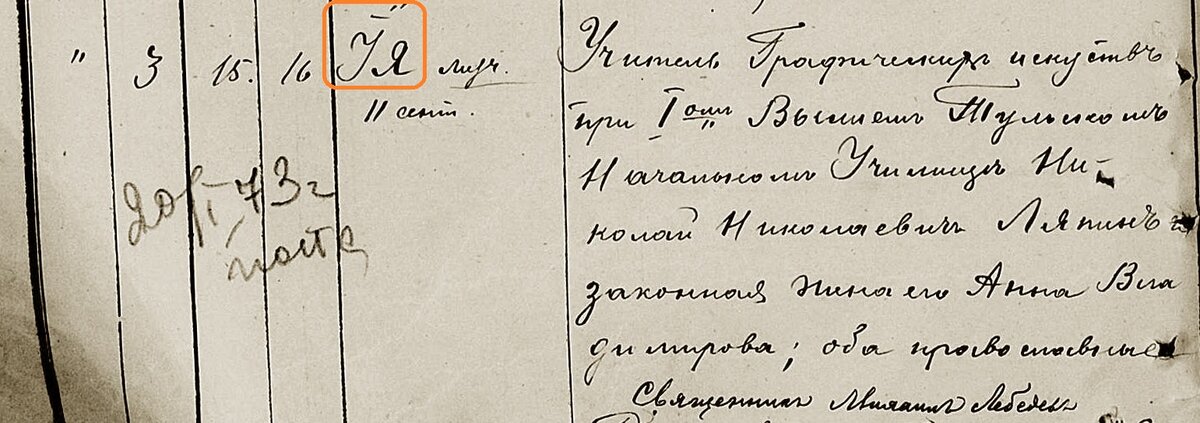 " 3 15. 16 Ія муч.
11 сент.
20/I 73 г
Учитель Графическихъ искуствъ
при Iомъ Высшемъ Тульскомъ
Начальномъ Училищѣ Ни-
колай Николаевичъ Ляпинъ и
законная жена его Анна Вла
димирова; оба православные
Священникъ Михаилъ Лебедевъ